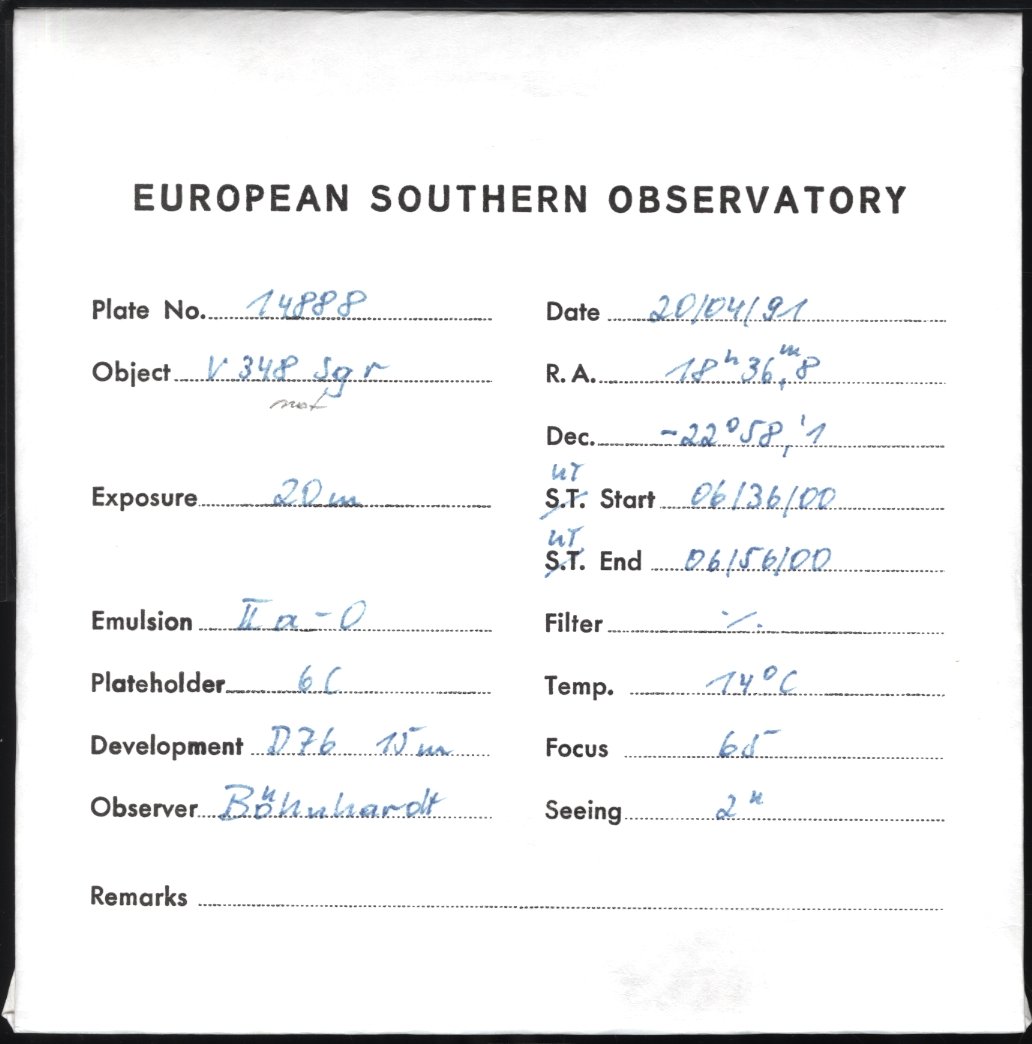 EUROPEAN SOUTHERN OBSERVATORY
Plate No. 14888 Date 20/04/91
Object V 348 Sgr R.A. 18ʰ36ᵐ,8
not
Dec. -22°58,'1
UT
Exposure 20m S.T. Start 06/36/00
UT
S.T. End 06/56/00
Emulsion IIa-O Filter ·/.
Plateholder 6C Temp. 14°C
Development D76 15m Focus 65
Observer Böhnhardt Seeing 2"
Remarks